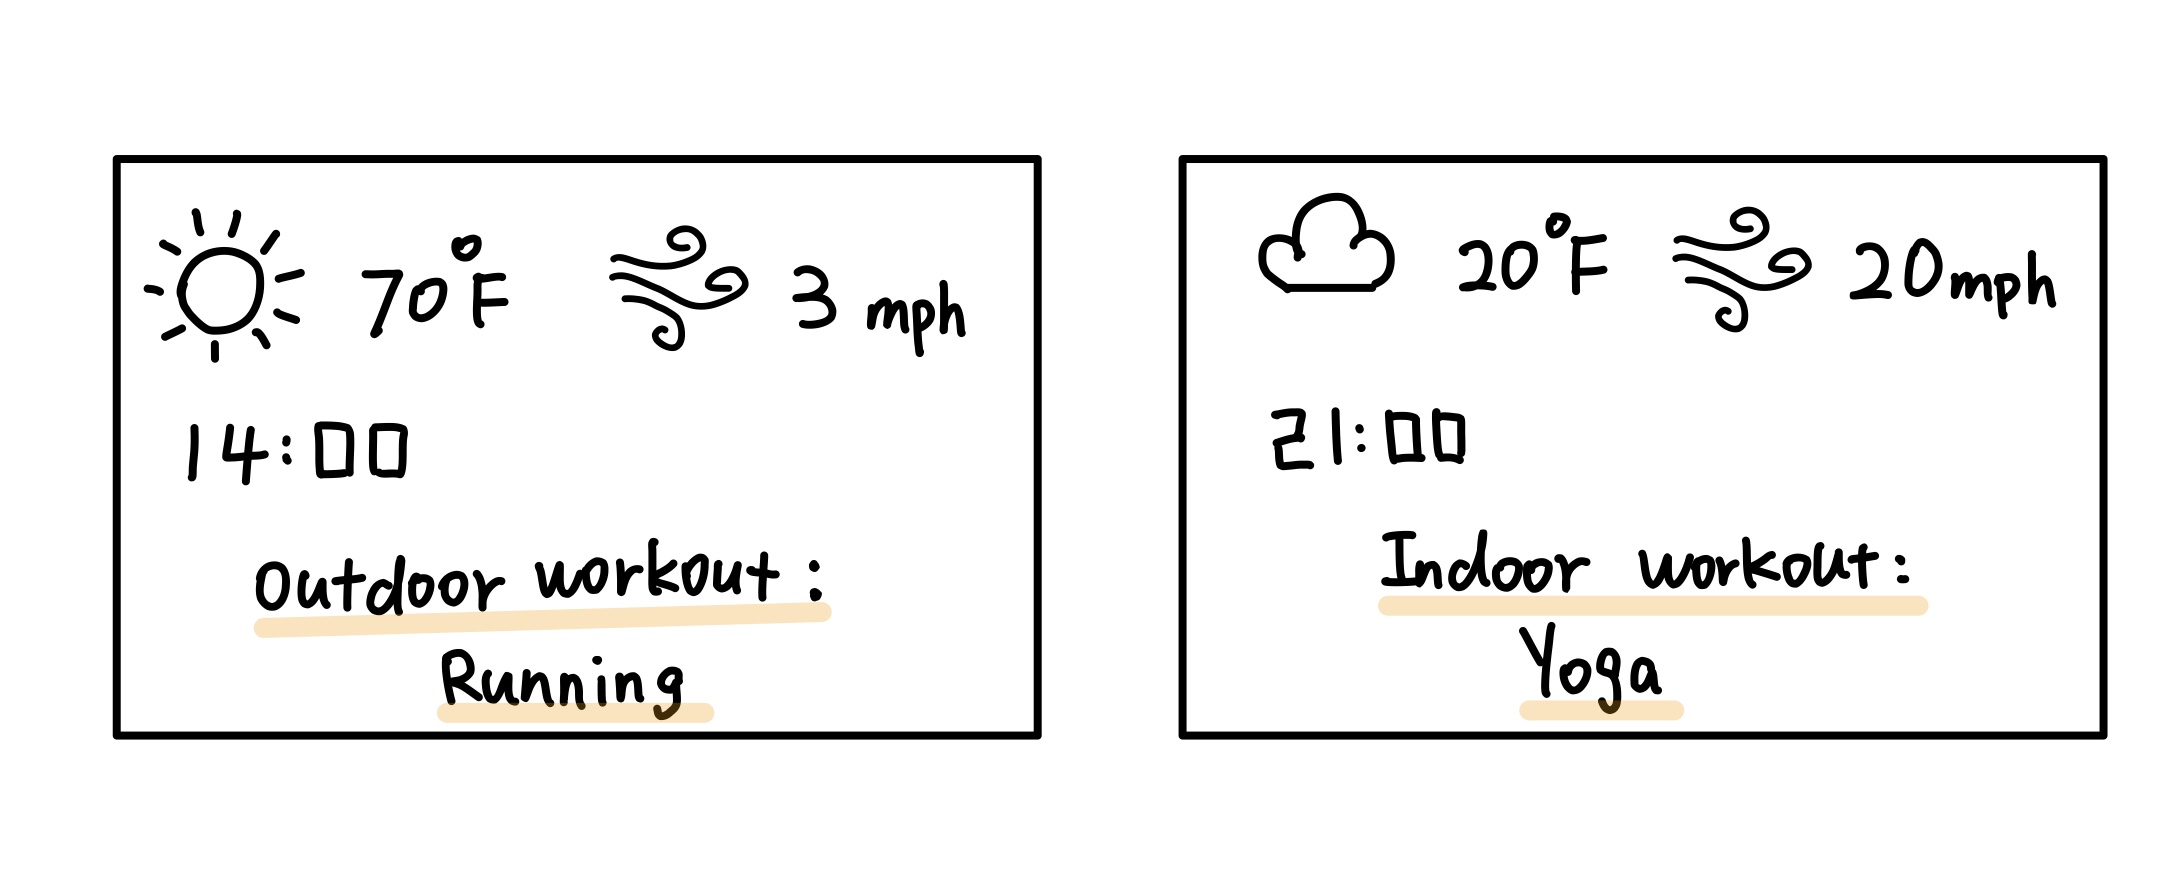 70°F 3 mph
14:00
Outdoor workout:
Running
20°F 20mph
21:00
Indoor workout:
Yoga